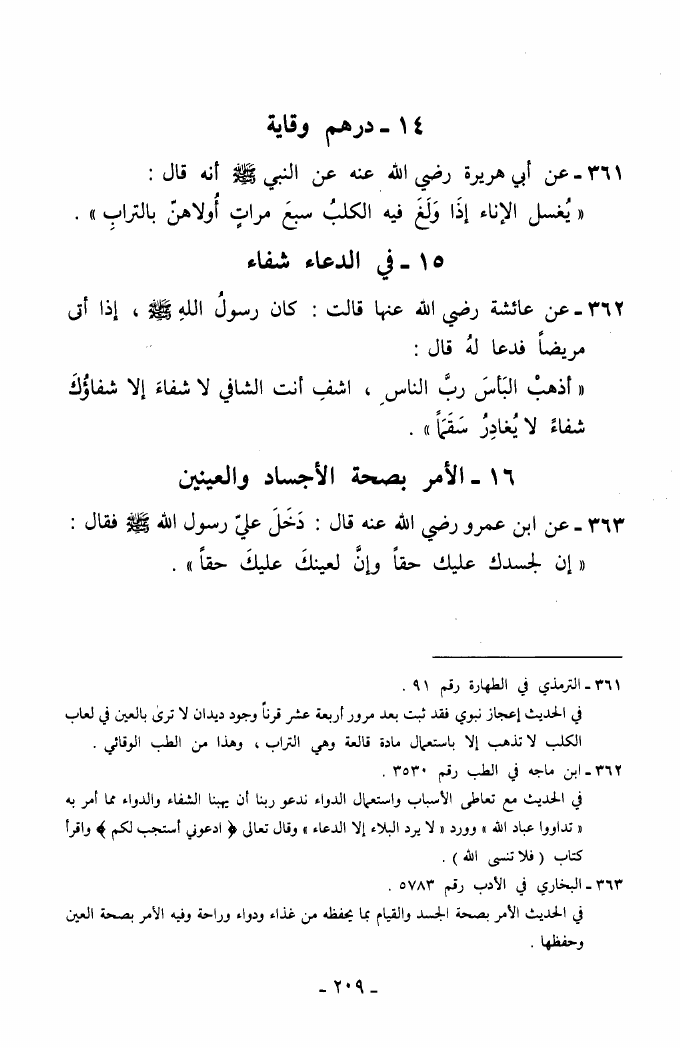 ١٤ ـ درهم وقاية
٣٦١ ـ عن أبي هريرة رضي الله عنه عن النبي ﷺ أنه قال :
« يُغسل الإناء إذَا وَلَغَ فيه الكلبُ سبعَ مراتٍ أُولاهنّ بالترابِ » .
١٥ ـ في الدعاء شفاء
٣٦٢ ـ عن عائشة رضي الله عنها قالت : كان رسولُ اللهِ ﷺ ، إذا أتى
مريضاً فدعا لهُ قال :
« أذهبْ البَأسَ ربَّ الناسِ ، اشفِ أنت الشافي لا شفاءَ إلا شفاؤُكَ
شفاءً لا يُغادِرُ سَقَمَاً » .
١٦ ـ الأمر بصحة الأجساد والعينين
٣٦٣ ـ عن ابن عمرو رضي الله عنه قال : دَخَلَ عليّ رسول الله ﷺ فقال :
« إن لجسدك عليك حقاً وإنَّ لعينكَ عليكَ حقاً » .
٣٦١ ـ الترمذي في الطهارة رقم ٩١ .
في الحديث إعجاز نبوي فقد ثبت بعد مرور أربعة عشر قرناً وجود ديدان لا ترى بالعين في لعاب
الكلب لا تذهب إلا باستعمال مادة قالعة وهي التراب ، وهذا من الطب الوقائي .
٣٦٢ ـ ابن ماجه في الطب رقم ٣٥٣٠ .
في الحديث مع تعاطى الأسباب واستعمال الدواء ندعو ربنا أن يهبنا الشفاء والدواء مما أمر به
« تداووا عباد الله » وورد « لا يرد البلاء إلا الدعاء » وقال تعالى ﴿ ادعوني أستجب لكم ﴾ واقرأ
كتاب ( فلا تنسى الله ) .
٣٦٣ ـ البخاري في الأدب رقم ٥٧٨٣ .
في الحديث الأمر بصحة الجسد والقيام بما يحفظه من غذاء ودواء وراحة وفيه الأمر بصحة العين
وحفظها .
ـ ٢٠٩ ـ